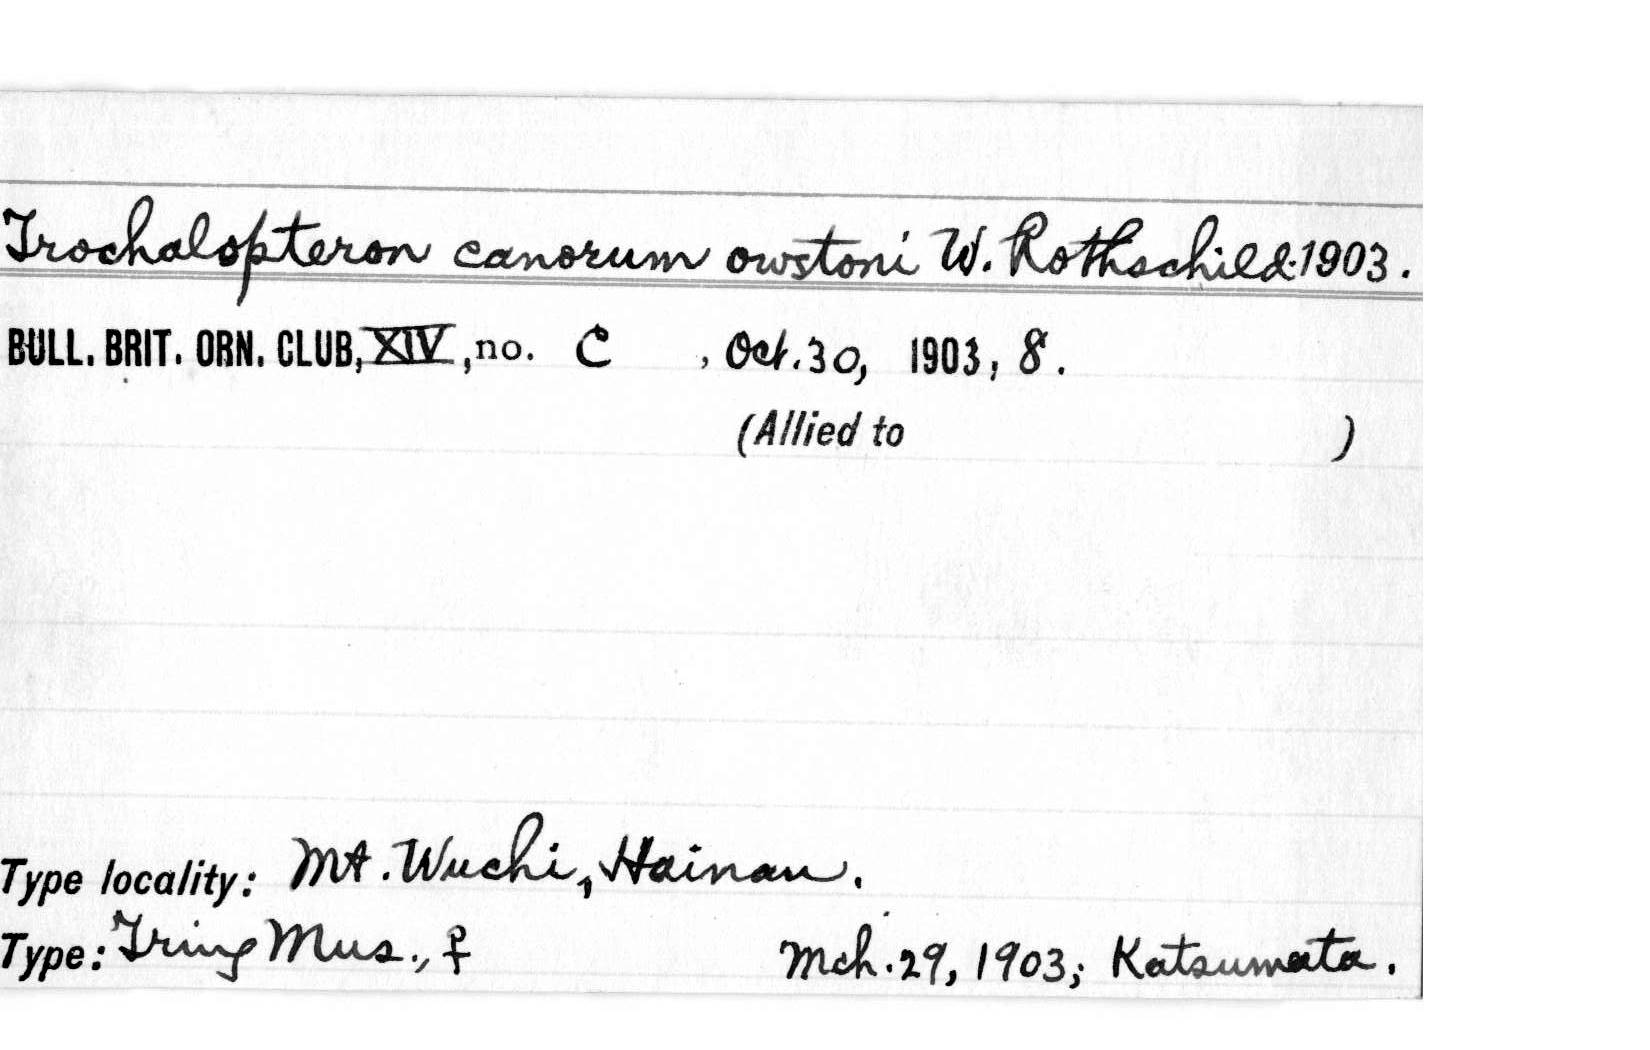 Trochalopteron canorum owstoni W. Rothschild 1903.
BULL. BRIT. ORN. CLUB, XIV, no. C , Oct. 30, 1903, 8.
(Allied to )
Type locality: Mt. Wuchi, Hainan.
Type: Tring Mus., ♀ Mch. 29, 1903; Katsumata.